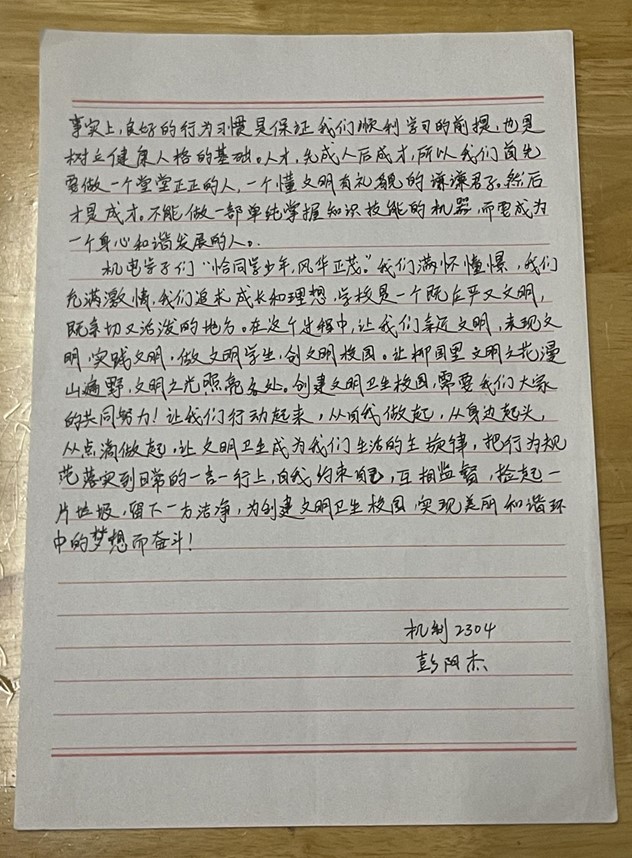 事实上,良好的行为习惯是保证我们顺利学习的前提,也是
树立健康人格的基础。人才,先成人后成才,所以我们首先
要做一个堂堂正正的人,一个懂文明有礼貌的谦谦君子。然后
才是成才。不能做一部单纯掌握知识技能的机器,而要成为
一个身心和谐发展的人。
机电学子们“恰同学少年,风华正茂。”我们满怀憧憬,我们
充满激情,我们追求成长和理想,学校是一个既庄严又文明,
既亲切又活泼的地方。在这个过程中,让我们亲近文明,表现文
明,实践文明,做文明学生,创文明校园。让柳园里文明之花漫
山遍野,文明之光照亮各处。创建文明卫生校园,需要我们大家
的共同努力!让我们行动起来,从自我做起,从身边起头,
从点滴做起,让文明卫生成为我们生活的主旋律,把行为规
范落实到日常的一言一行上,自我约束自己,互相监督,捡起一
片垃圾,留下一方洁净,为创建文明卫生校园,实现美丽和谐环
中的梦想而奋斗!
机制2304
彭阳杰